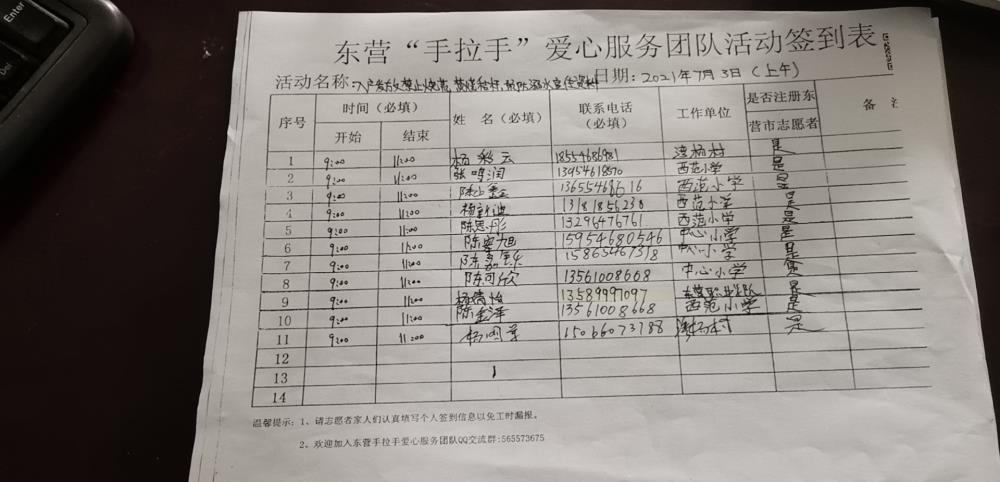 Enter
Del
东营“手拉手”爱心服务团队活动签到表
活动名称: 日期: 2021年7月3日(上午)
序号 时间（必填） 姓 名(必填) 联系电话（必填） 工作单位 是否注册东营市志愿者 备
开始 结束
1 9:00 11:00 杨彩云 18554686981 湾杨村 是
2 9:00 11:00 张鸣润 13954618570 西范小学 是
3 9:00 11:00 13655468616 西范小学 是
4 9:00 11:00 13181856238 西范小学 是
5 9:00 11:00 陈思彤 13296476761 西范小学 是
6 9:00 11:00 15954680546 中心小学 是
7 9:00 11:00 15865467318 中心小学 是
8 9:00 11:00 陈可欣 13561008668 中心小学 是
9 9:00 11:00 13589997097 是
10 9:00 11:00 13561008668 西范小学 是
11 9:00 11:00 15066073188 是
12
13
14
温馨提示: 1、请志愿者家人们认真填写个人签到信息以免工时漏报。
2、欢迎加入东营手拉手爱心服务团队QQ交流群:565573675